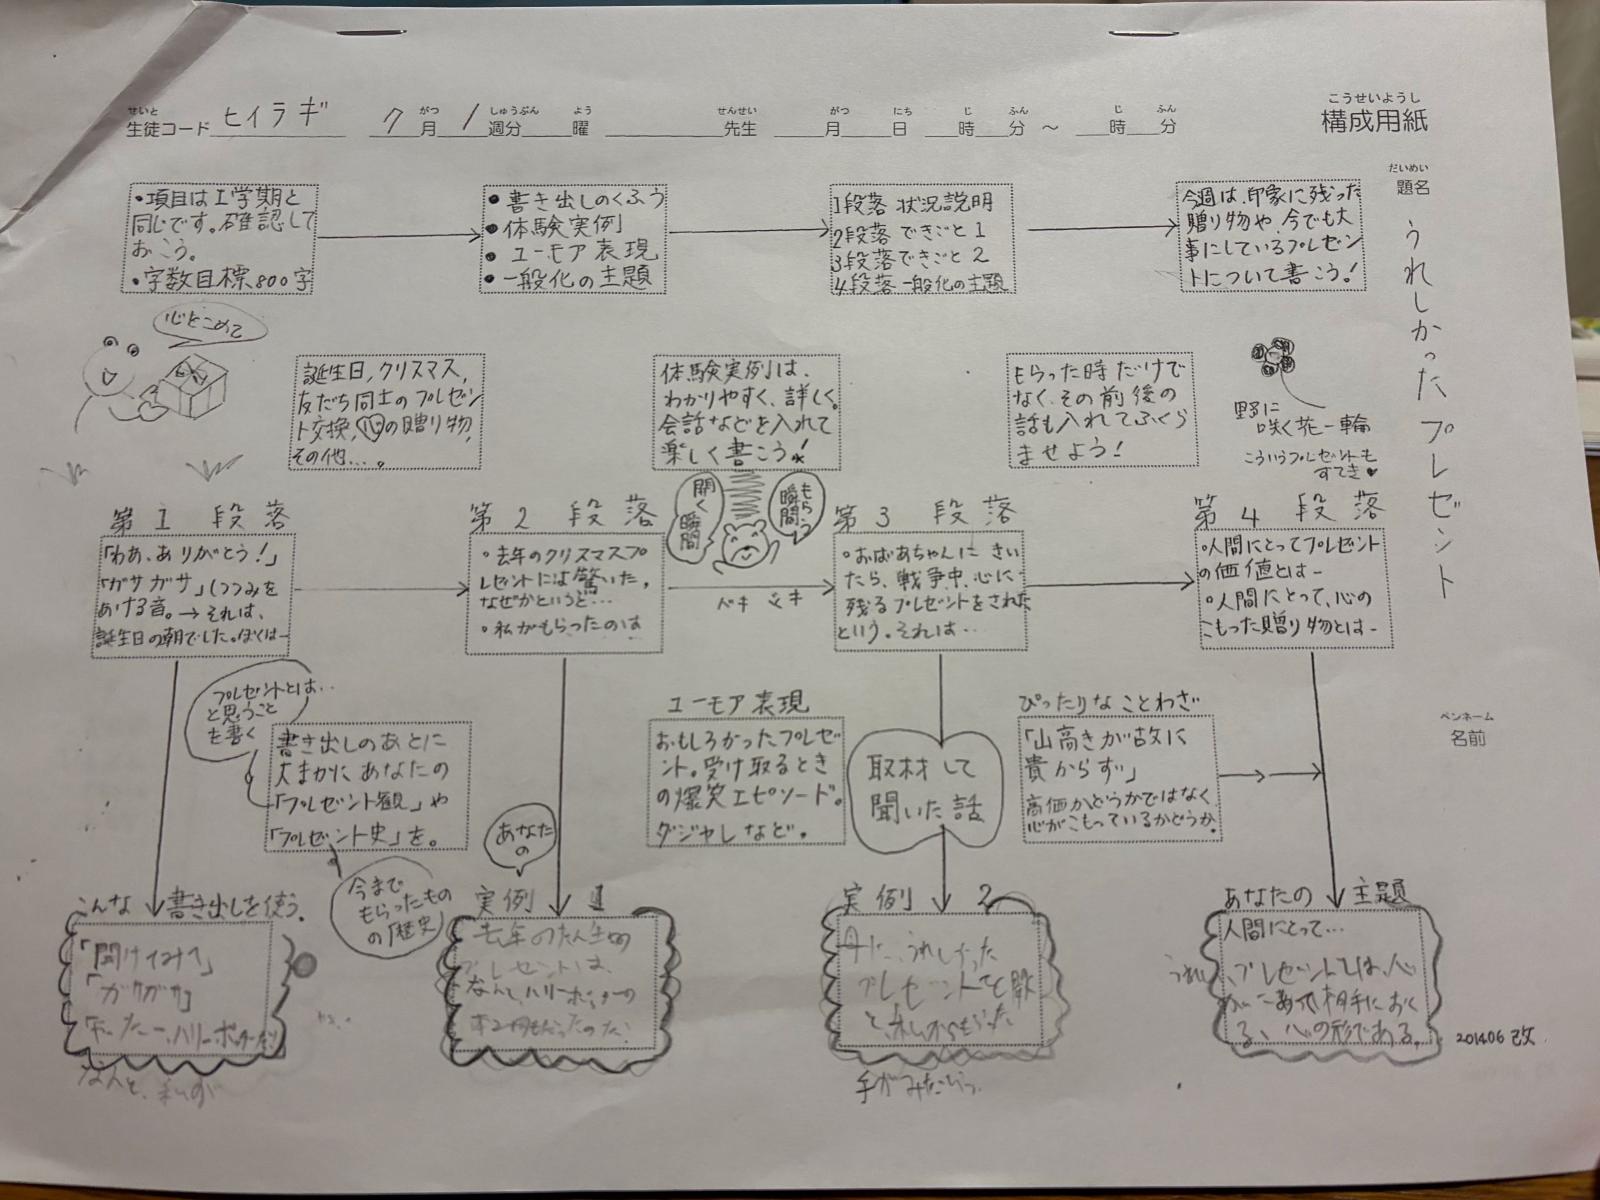 せいと がつ しゅうぶん よう せんせい がつ にち じ ふん じ ふん
生徒コード ヒイラギ 7月 1週分 曜 先生 月 日 時 分 ～ 時 分
こうせいようし
構成用紙
だいめい
題名
うれしかったプレゼント
今週は、印象に残った
贈り物や、今でも大
事にしているプレゼン
トについて書こう！
1段落 状況説明
2段落 できごと1
3段落 できごと2
4段落 一般化の主題
• 書き出しのくふう
• 体験実例
• ユーモア表現
• 一般化の主題
• 項目はI学期と
同じです。確認して
おこう。
• 字数目標800字
心をこめて
誕生日,クリスマス,
友だち同士のプレゼン
ト交換,心の贈り物,
その他…。
体験実例は、
わかりやすく、詳しく。
会話などを入れて
楽しく書こう！
もらった時だけで
なく、その前後の
話も入れてふくら
ませよう！
野に
咲く花一輪
こういうプレゼントも
すてき♥
第1段落
「わあ、ありがとう！」
「ガサガサ」(つつみを
あける音。→それは、
誕生日の朝でした。ぼくは―
第2段落
・去年のクリスマスプ
レゼントには驚いた。
なぜかというと…
・私がもらったのは
開く瞬間
もらう瞬間
ドキ ドキ
第3段落
・おばあちゃんにきい
たら、戦争中、心に
残るプレゼントをされた
という。それは…
第4段落
・人間にとってプレゼント
の価値とは―
・人間にとって、心の
こもった贈り物とは―
プレゼントとは…
と思うこと
を書く
書き出しのあとに
大まかにあなたの
「プレゼント観」や
「プレゼント史」を。
今まで
もらったもの
の「歴史」
ユーモア表現
おもしろかったプレゼ
ント。受け取るとき
の爆笑エピソード。
ダジャレなど。
取材して
聞いた話
ぴったりなことわざ
「山高きが故に
貴からず」
高価かどうかではなく
心がこもっているかどうか。
ペンネーム
名前
こんな書き出しを使う。
「開けてみて」
「ガサガサ」
「やったー、ハリーポッターだ」
なんと、私が
あなたの
実例 1
去年のたん生日の
プレゼントは、
なんと、ハリーポッターの
本2冊もらったのだ。
実例 2
母に、うれしかった
プレゼント
と、私からもらった
手がみだという。
あなたの主題
人間にとって…
プレゼントとは、心
相手におく
る、心の形である。
2014.06 改